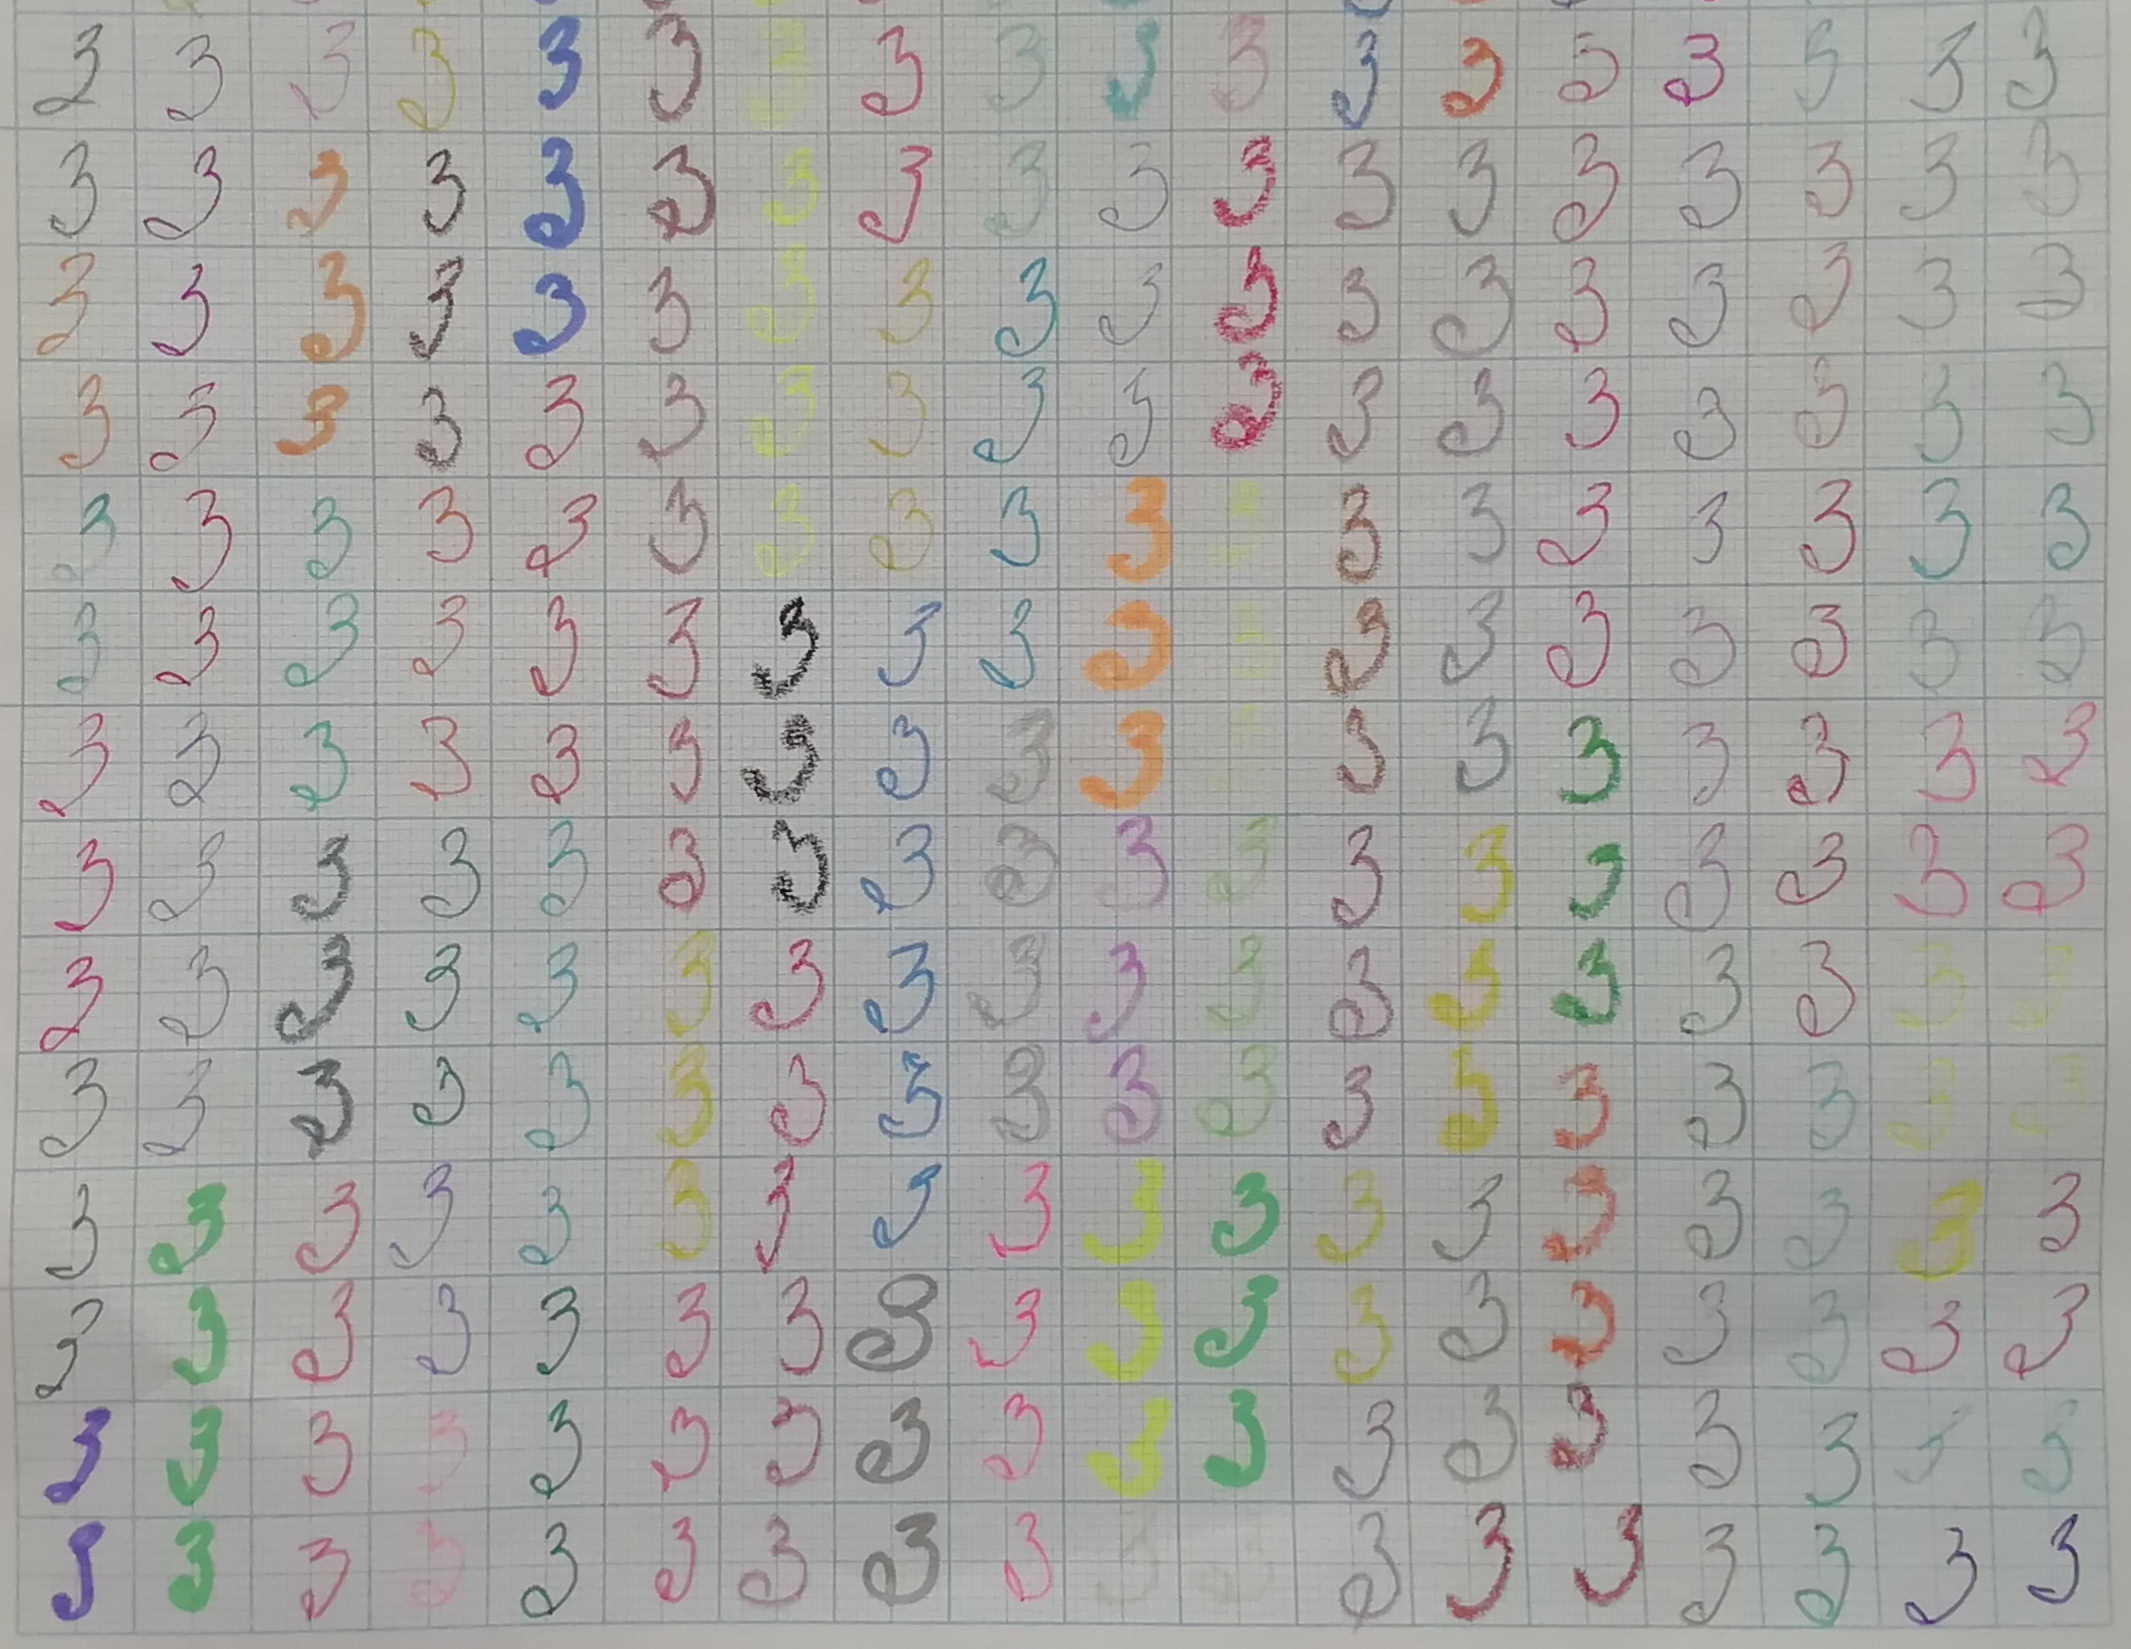 3 3 3 3 3 3 3 3 3 3 3 3 3 3 3 3 3 3
3 3 3 3 3 3 3 3 3 3 3 3 3 3 3 3 3 3
3 3 3 3 3 3 3 3 3 3 3 3 3 3 3 3 3 3
3 3 3 3 3 3 3 3 3 3 3 3 3 3 3 3 3 3
3 3 3 3 3 3 3 3 3 3 3 3 3 3 3 3 3 3
3 3 3 3 3 3 3 3 3 3 3 3 3 3 3 3 3 3
3 3 3 3 3 3 3 3 3 3 3 3 3 3 3 3 3
3 3 3 3 3 3 3 3 3 3 3 3 3 3 3 3 3 3
3 3 3 3 3 3 3 3 3 3 3 3 3 3 3 3 3 3
3 3 3 3 3 3 3 3 3 3 3 3 3 3 3 3 3 3
3 3 3 3 3 3 3 3 3 3 3 3 3 3 3 3 3 3
3 3 3 3 3 3 3 3 3 3 3 3 3 3 3 3 3 3
3 3 3 3 3 3 3 3 3 3 3 3 3 3 3 3 3 3
3 3 3 3 3 3 3 3 3 3 3 3 3 3 3 3 3 3